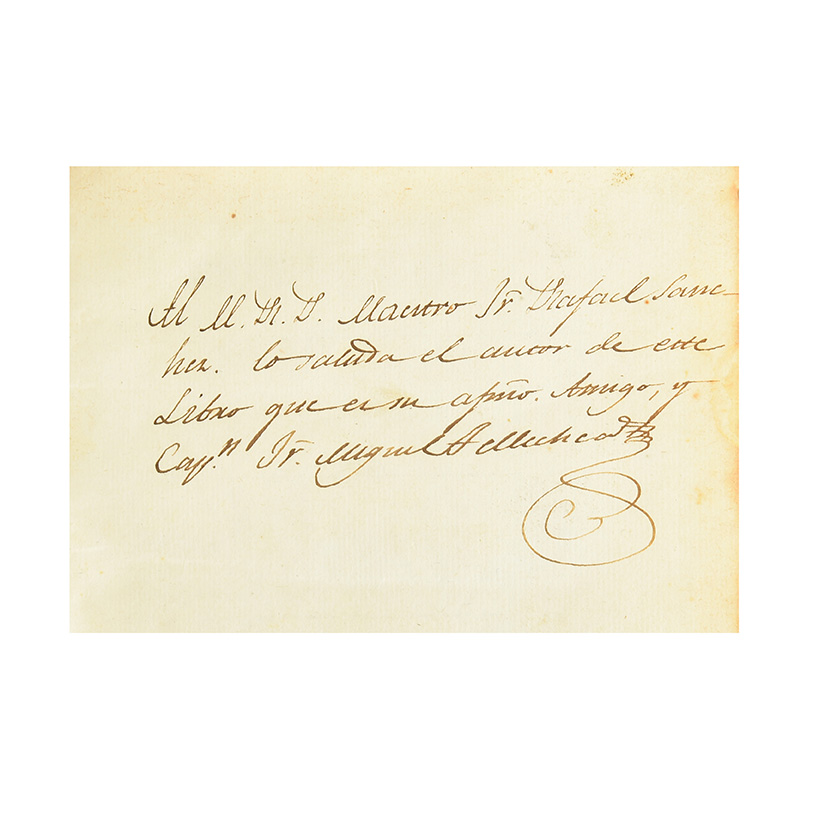 Al M. R. P. Maestro Fr. Rafael Sanc-
hez. lo saluda el autor de este
Libro que es su afm̃o. Amigo, y
Capⁿ. Fr. Miguel Tellechea